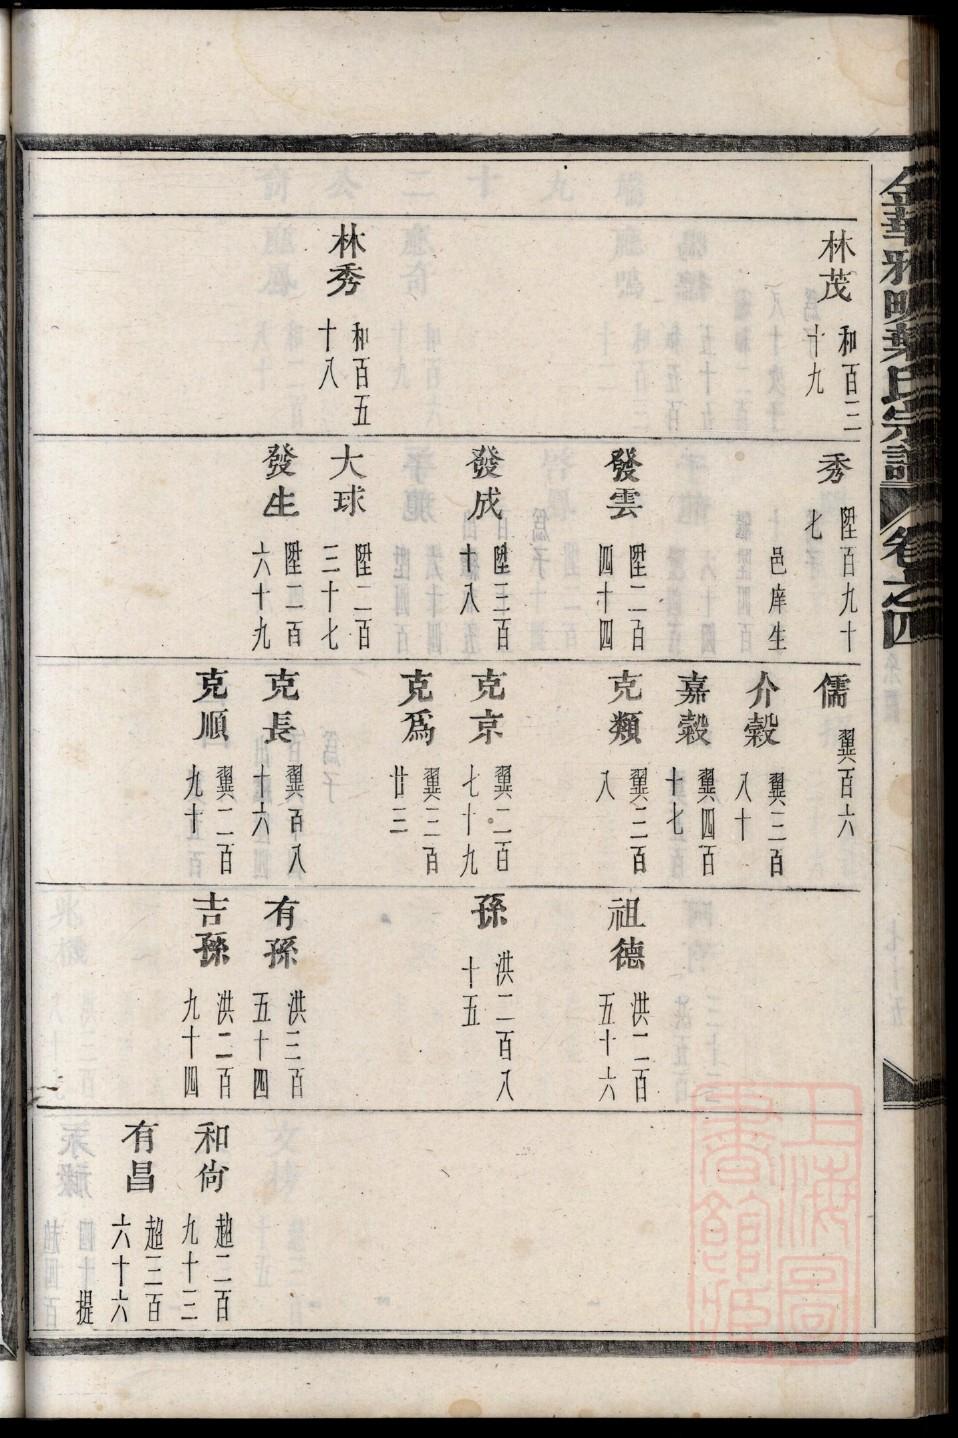 金華雅畈葉氏宗譜 卷之四
林茂 和百三十九
林秀 和百五十八
秀 陞百九十七 邑庠生
發雲 陞二百四十四
發成 陞三百十八
大球 陞二百三十七
發生 陞二百六十九
儒 翼百六
介穀 翼三百八十
嘉穀 翼四百十七
克類 翼三百八
克京 翼二百七十九
克爲 翼三百廿三
克長 翼百八十六
克順 翼二百九十
祖德 洪二百五十六
孫 洪二百八十五
有孫 洪三百五十四
吉孫 洪二百九十四
和尙 趙二百九十三
有昌 趙三百六十六
提
上海圖書館藏